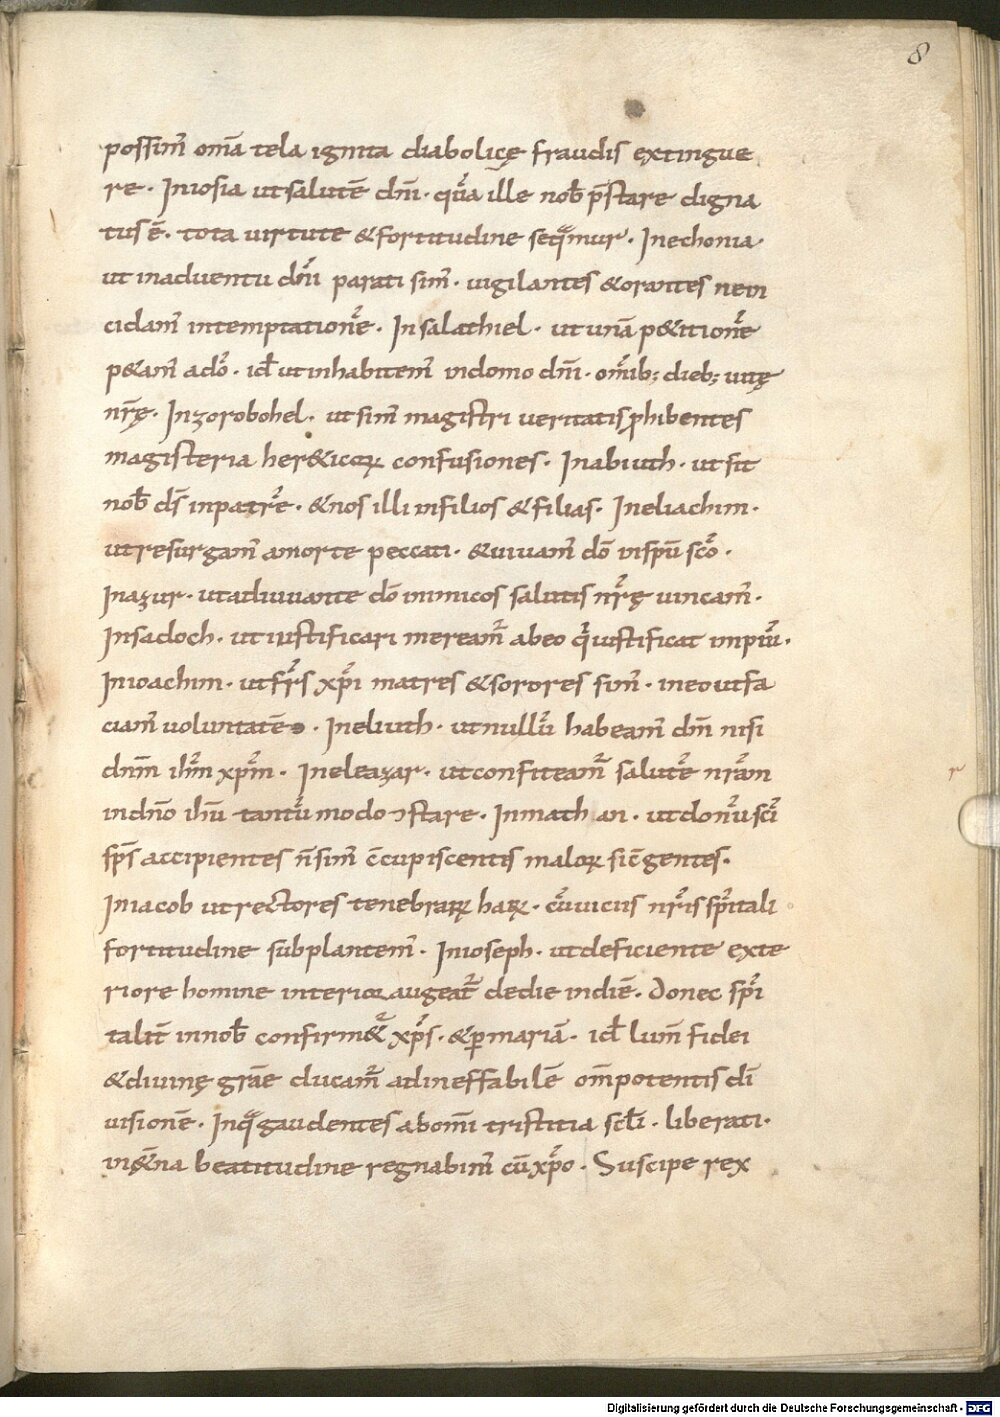 8
possim̄ om̄a tela ignita diabolicę fraudis extingue
re · In iosia ut salutē dn̄i · quā ille nob̄ p̄stare digna
tus ē · tota uirtute & fortitudine seq̄mur · In echonia ·
ut in aduentu dn̄i parati sim̄ · uigilantes & orantes ne in
cidam̄ in temptationē · In salathiel · ut unā p&itionē
p&am̄ a dō · id̄ ut inhabitem̄ in domo dn̄i · om̄ib; dieb; uitę
nr̄ę · In zorobohel · ut sim̄ magistri ueritatis ꝓhibentes
magisteria her&icoꝝ confusiones · In abiuth · ut sit
nob̄ ds̄ in patrē · & nos illi in filios & filias · In eliachim ·
ut resurgam̄ a morte peccati · & uiuam̄ dō in sp̄u scō ·
In azur · ut adiuuante dō inimicos salutis nr̄ę uincam̄ ·
In sadoch · ut iustificari meream̄ ab eo q̄ iustificat impiū ·
In ioachim · ut fr̄s xp̄i matres & sorores sim̄ · in eo ut fa
ciam̄ uoluntatē · In eliuth · ut nullū habeam̄ dn̄m nisi
dn̄m ih̄m xp̄m · In eleazar · ut confiteam̄ salutē nr̄am
in dn̄o ih̄u tantū modo ↄstare · In math an · ut donū sc̄i
sp̄s accipientes n̄ sim̄ ↄcupiscentes maloꝝ sic̄ gentes ·
In iacob ut rectores tenebraꝝ haꝝ · cū uiciis nr̄is sp̄itali
fortitudine subplantem̄ · In ioseph · ut deficiente exte
riore homine interior augeat̄ de die in diē · Donec sp̄i
talit̄ in nob̄ confirm& xp̄s · & ꝑ mariā · id̄ lum̄ fidei
& diuinę grāe ducam̄ ad ineffabilē om̄potentis dī
uisionē · In q̄ gaudentes ab om̄i tristitia scl̄i · liberati ·
in ęt̄na beatitudine regnabim̄ cū xp̄o · Suscipe rex
r
Digitalisierung gefördert durch die Deutsche Forschungsgemeinschaft - DFG